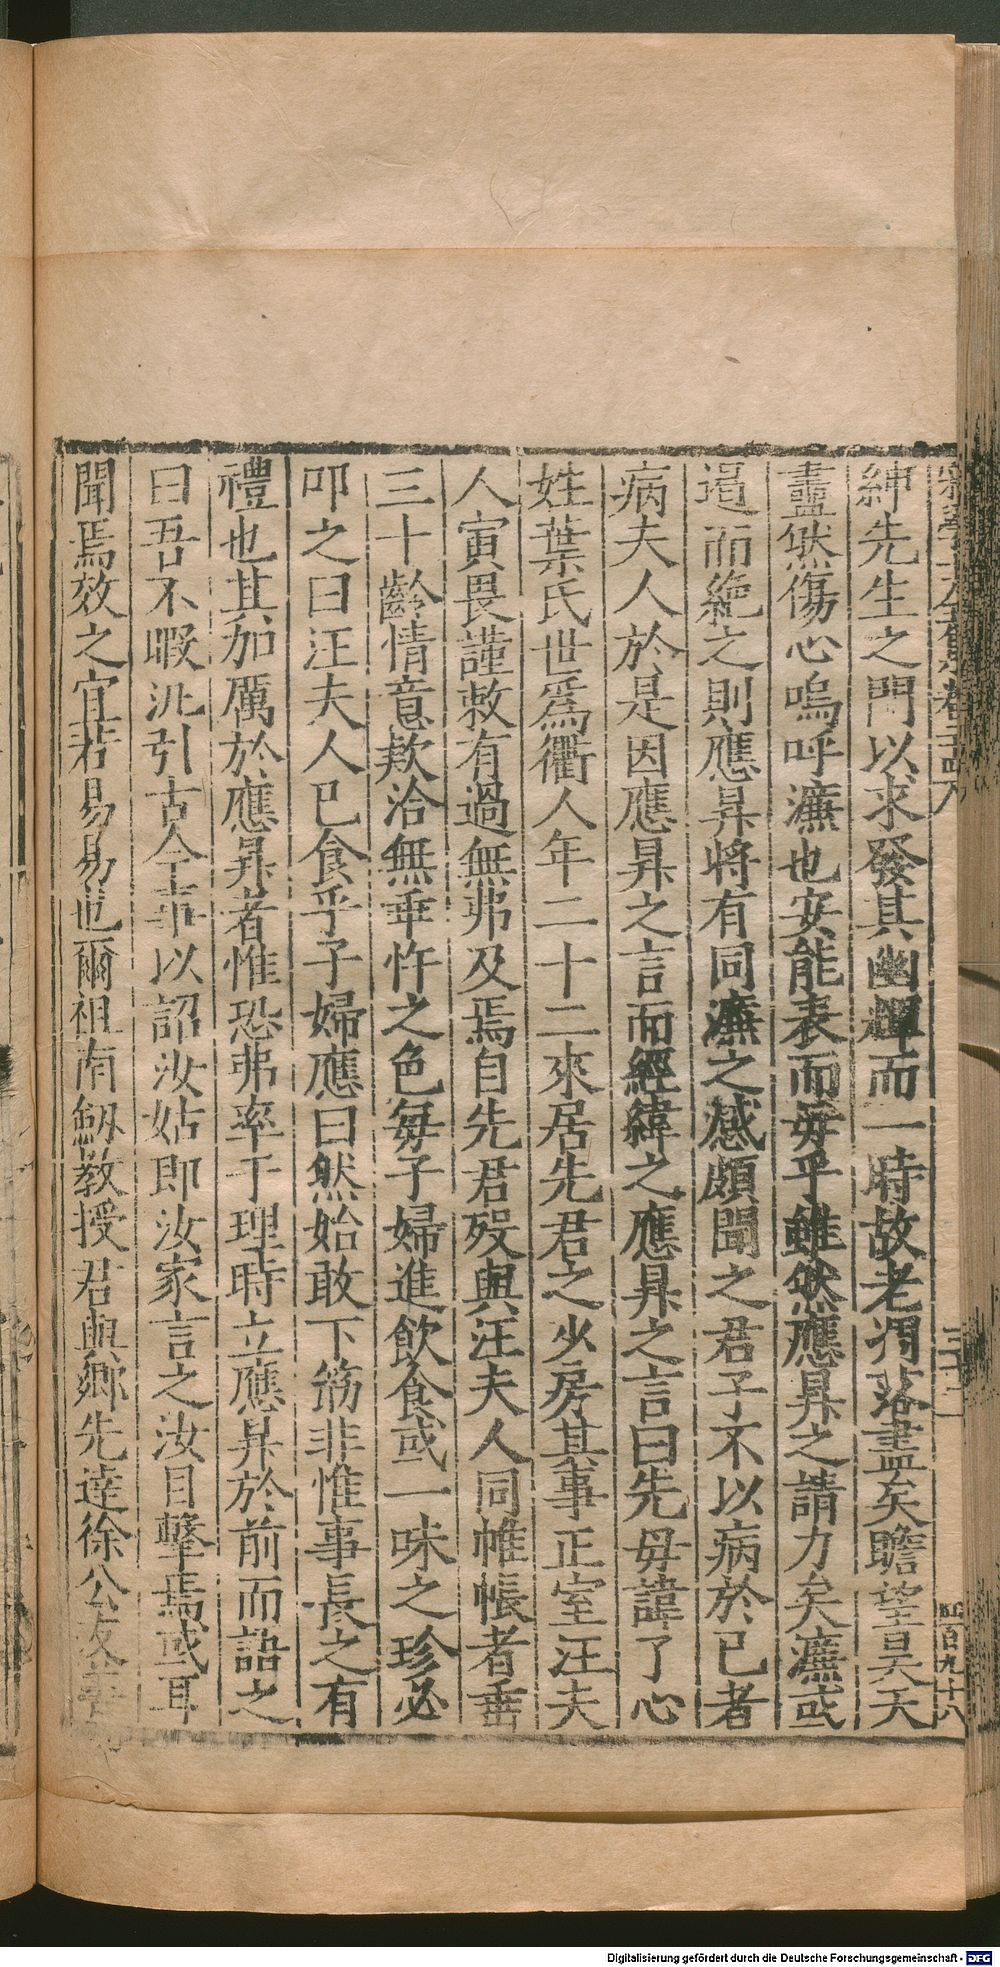 紳先生之門以求發其幽輝而一時故老凋落盡矣瞻望昊天
衋然傷心嗚呼濂也安能表而毋乎雖然應昇之請力矣濂或
遏而絶之則應昇將有同濂之感頗聞之君子不以病於已者
病夫人於是因應昇之言而經緯之應昇之言曰先毋諱了心
姓葉氏世爲衢人年二十二來居先君之少房其事正室汪夫
人寅畏謹敕有過無弗及焉自先君歿與汪夫人同帷帳者垂
三十齡情意欵洽無乖忤之色每子婦進飲食或一味之珍必
叩之曰汪夫人巳食乎子婦應曰然始敢下筯非惟事長之有
禮也其加厲於應昇者惟恐弗率于理時立應昇於前而語之
曰吾不暇汎引古今事以詔汝姑即汝家言之汝目擊焉或耳
聞焉效之宜若易易也爾祖南劔教授君與鄉先達徐公友
卷
三十二
四百九十八
Digitalisierung gefördert durch die Deutsche Forschungsgemeinschaft - DFG